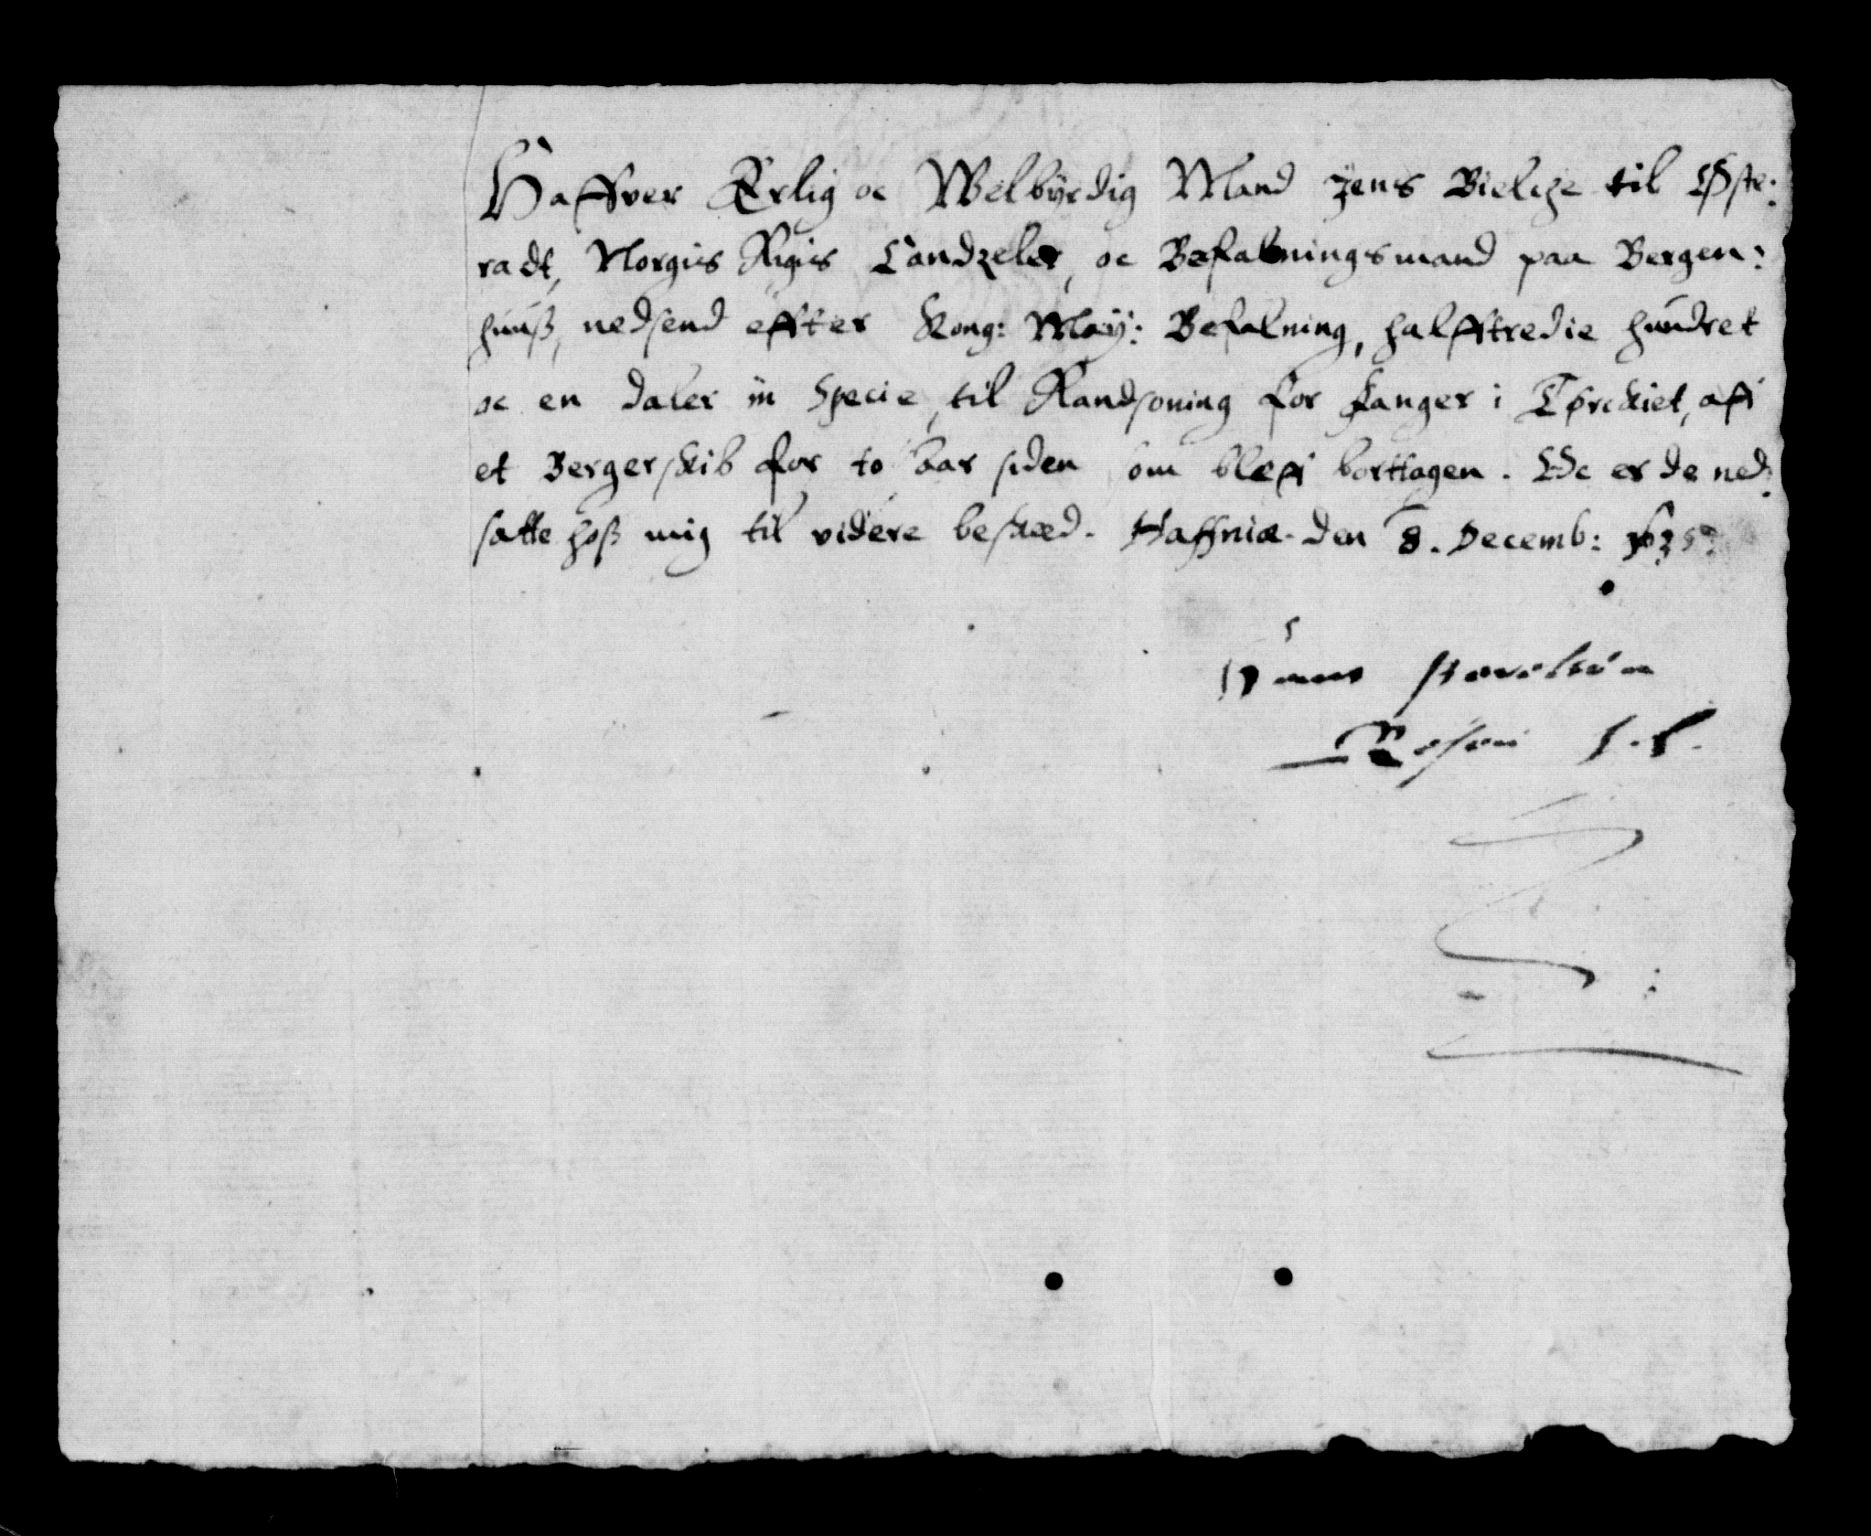 Haffver Erlig oc Welbyrdig Mand Jens Bielcke til Øste:
radt, Norgis Rigis Candzeler, oc Befalningsmand paa Bergen:
huuß, nedsend effter Kong: May: Befalning, halfftredie hundret
oc en daler in specie, til Randsoning for fanger i Tørckiet, aff
et Bergerskib for to Aar siden som bleff borttagen. Oc er de ned:
satte hoß mig til videre beskeed. Haffniæ. den 8. Decemb:
Hanns Povelsøn
Resen